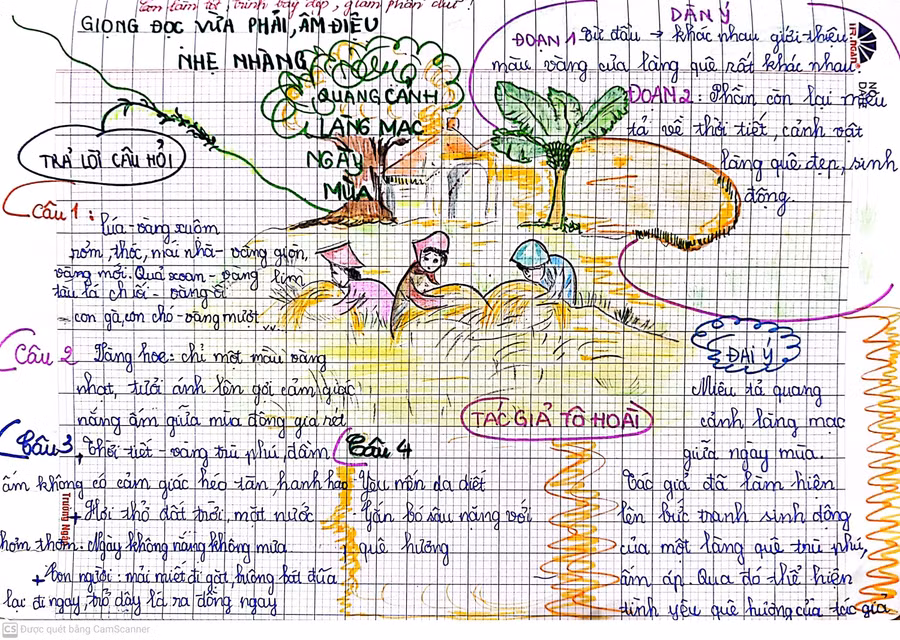 Con làm tốt, trình bày đẹp, giam phấn đút!
GIỌNG ĐỌC VỪA PHẢI, ÂM ĐIỆU
NHẸ NHÀNG
QUANG CẢNH
LÀNG MẠC
NGÀY
MÙA
DÀN Ý
ĐOẠN 1 Từ đầu → khác nhau giới thiệu
màu vàng của làng quê rất khác nhau.
ĐOẠN 2: Phần còn lại miêu
tả về thời tiết, cảnh vật
làng quê đẹp, sinh
động.
TRẢ LỜI CÂU HỎI
Câu 1: lúa - vàng xuộm
rơm, thóc, mái nhà - vàng giòn,
vàng mới. Quả xoan - vàng lịm
tàu lá chuối - vàng ối
con gà, con chó - vàng mượt
Câu 2 Vàng hoe: chỉ một màu vàng
nhạt, tươi ánh lên gợi cảm giác
nắng ấm giữa mùa đông giá rét
Câu 3 + thời tiết - vàng trù phú, đầm
ấm không có cảm giác héo tàn, hanh hao
+ Hơi thở đất trời, mặt nước
thơm thơm. Ngày không nắng không mưa
+ Con người: mải miết đi gặt, buông bát đũa
lại đi ngay, trở dậy là ra đồng ngay
Câu 4
Yêu mến da diết
Gắn bó sâu nặng với
quê hương
TÁC GIẢ TÔ HOÀI
ĐẠI Ý
Miêu tả quang
cảnh làng mạc
giữa ngày mùa.
Tác giả đã làm hiện
lên bức tranh sinh động
của một làng quê trù phú,
ấm áp. Qua đó thể hiện
tình yêu quê hương của tác giả
Trường Ngày
CS Được quét bằng CamScanner